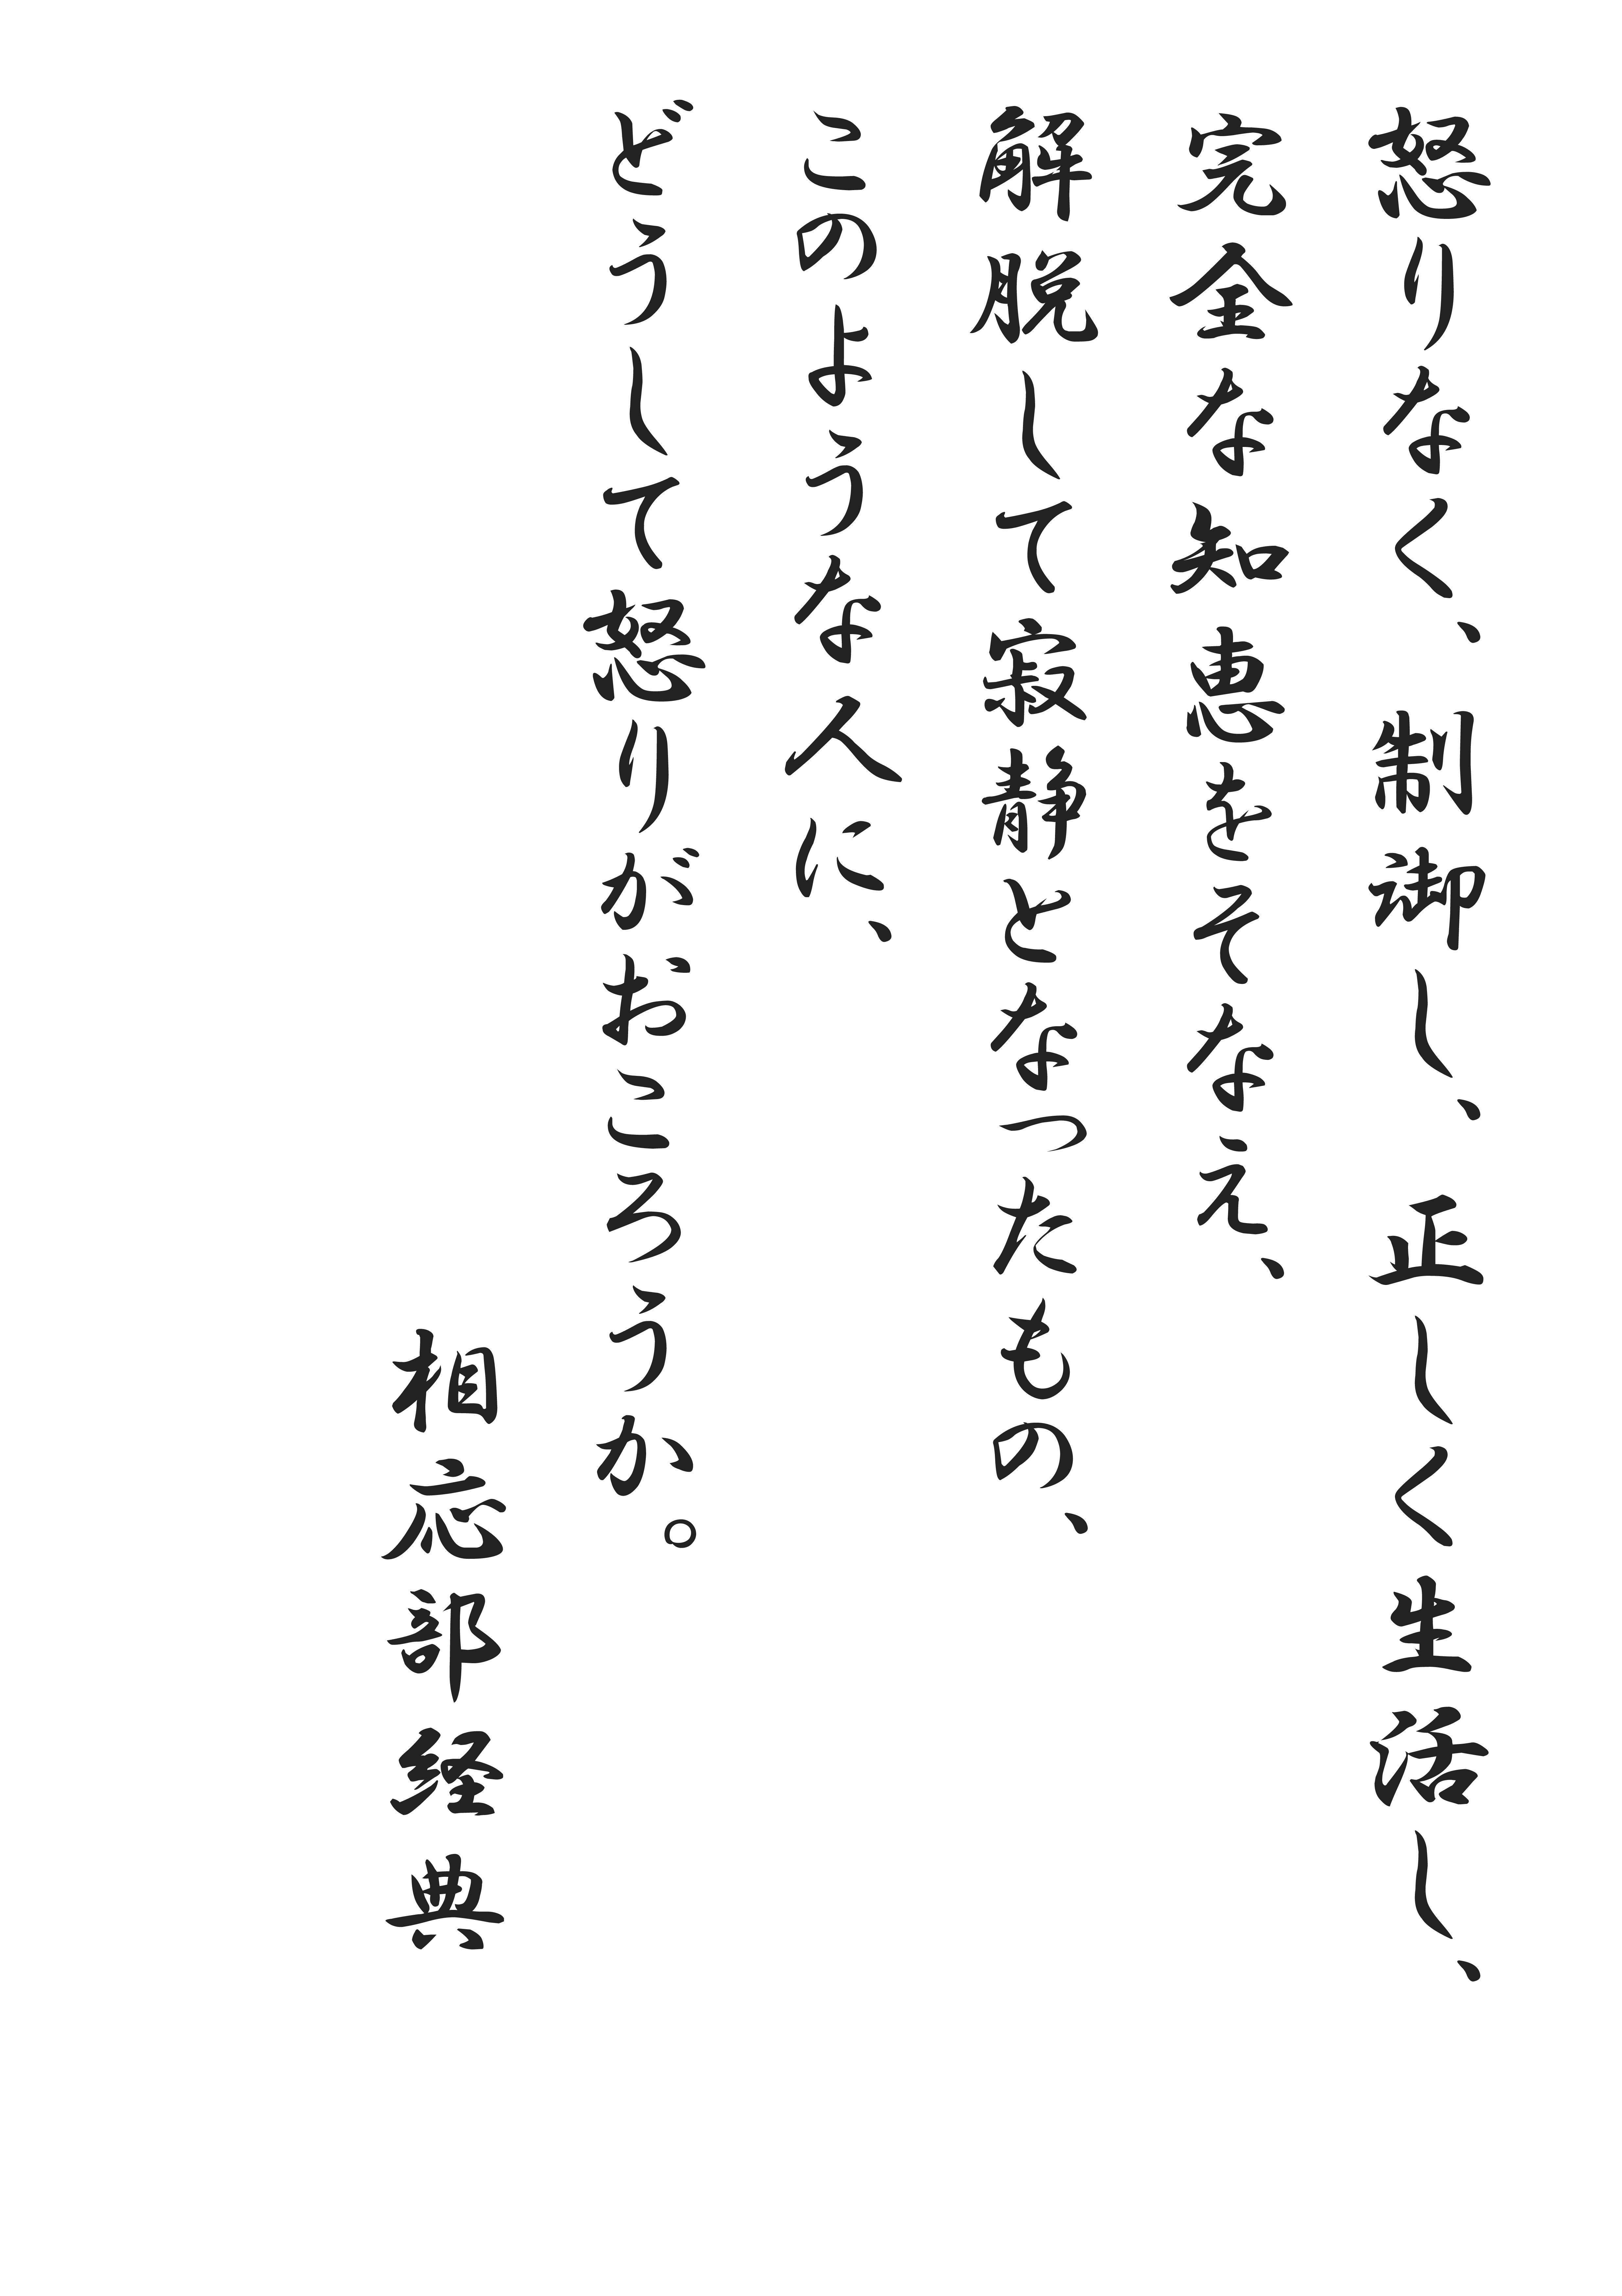 怒りなく、制御し、正しく生活し、
完全な知恵をそなえ、
解脱して寂静となつたもの、
このような人に、
どうして怒りがおころうか。
相応部経典